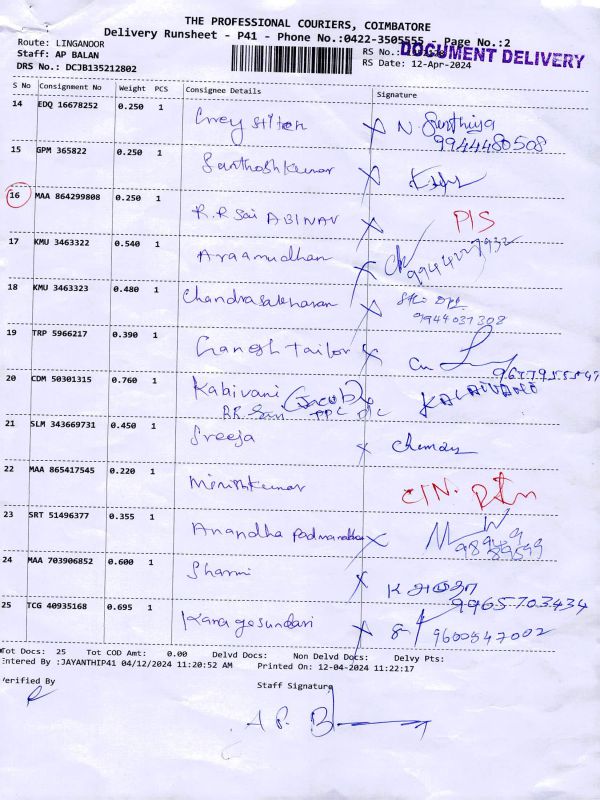 THE PROFESSIONAL COURIERS, COIMBATORE
Delivery Runsheet - P41 - Phone No.:0422-3505555 - Page No.:2
Route: LINGANOOR
Staff: AP BALAN RS No.:
DOCUMENT DELIVERY
DRS No.: DCJB135212802 RS Date: 12-Apr-2024
S No Consignment No Weight PCS Consignee Details Signature
14 EDQ 16678252 0.250 1 Grey stitch N. Santhiya
9944480508
15 GPM 365822 0.250 1 Santhosh kumar
16 MAA 864299808 0.250 1 R.R Sai ABINAV P/S
17 KMU 3463322 0.540 1 Araamudhan
18 KMU 3463323 0.480 1 Chandrasekharan
9944037308
19 TRP 5966217 0.390 1 Ganesh tailor
20 CDM 50301315 0.760 1 Kabivani KALAIVANI
21 SLM 343669731 0.450 1 Sreeja
22 MAA 865417545 0.220 1 Minishkumar C/N. Rtn
23 SRT 51496377 0.355 1 Anandha Padmanabhan
24 MAA 703906852 0.600 1 Sharmi
9965703434
25 TCG 40935168 0.695 1 Karagesundari 9600547002
Tot Docs: 25 Tot COD Amt: 0.00 Delvd Docs: Non Delvd Docs: Delvy Pts:
Entered By :JAYANTHIP41 04/12/2024 11:20:52 AM Printed On: 12-04-2024 11:22:17
Verified By Staff Signature
A P. B